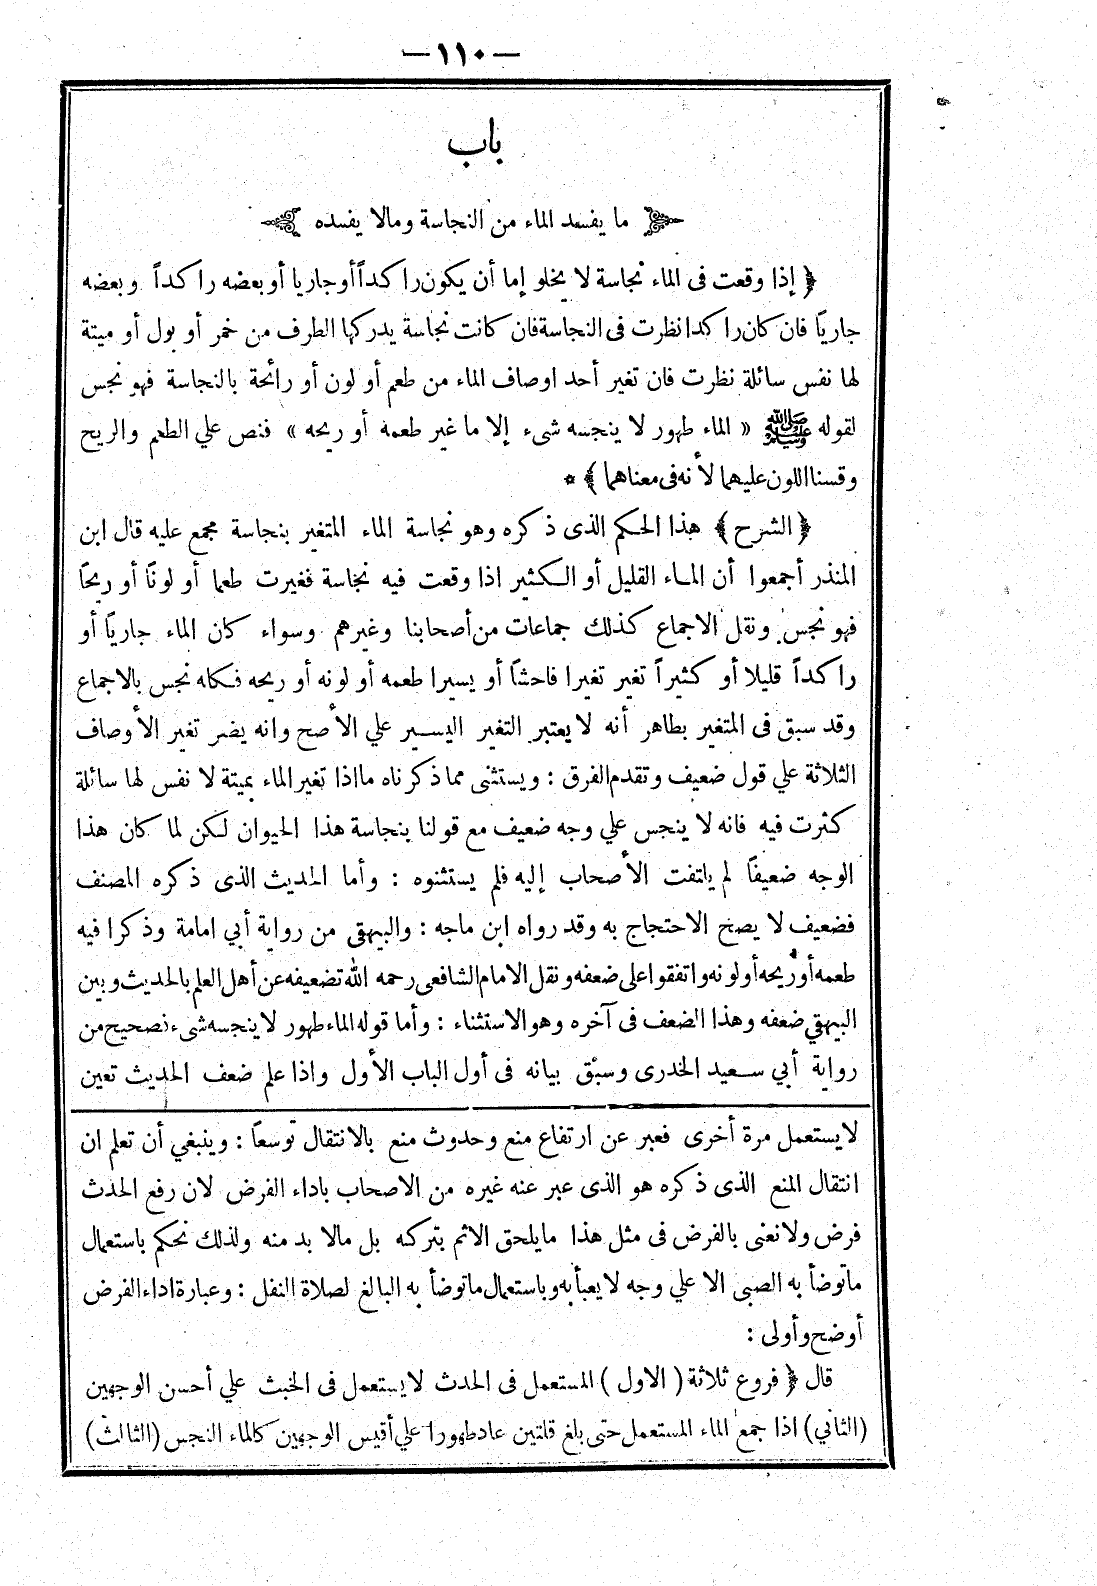 — ١١٠ —
باب
﴿ ما يفسد الماء من النجاسة ومالا يفسده ﴾
﴿ إذا وقعت فى الماء نجاسة لا يخلو إما أن يكون راكداً أو جاريا أو بعضه راكداً وبعضه
جاريًا فان كان راكدا نظرت فى النجاسة فان كانت نجاسة يدركها الطرف من خمر أو بول أو ميتة
لها نفس سائلة نظرت فان تغير أحد اوصاف الماء من طعم أو لون أو رائحة بالنجاسة فهو نجس
لقوله ﷺ « الماء طهور لا ينجسه شىء إلا ما غير طعمه أو ريحه » فنص علي الطعم والريح
وقسنا اللون عليهما لأنه فى معناهما ﴾ *
﴿ الشرح ﴾ هذا الحكم الذى ذكره وهو نجاسة الماء المتغير بنجاسة مجمع عليه قال ابن
المنذر أجمعوا أن الماء القليل أو الكثير اذا وقعت فيه نجاسة فغيرت طعما أو لونًا أو ريحًا
فهو نجس ونقل الاجماع كذلك جماعات من أصحابنا وغيرهم وسواء كان الماء جاريًا أو
راكداً قليلا أو كثيراً تغير تغيرا فاحشًا أو يسيرا طعمه أو لونه أو ريحه فكله نجس بالاجماع
وقد سبق فى المتغير بطاهر أنه لا يعتبر التغير اليسير علي الأصح وانه يضر تغير الأوصاف
الثلاثة علي قول ضعيف وتقدم الفرق : ويستثنى مما ذكرناه ما اذا تغير الماء بميتة لا نفس لها سائلة
كثرت فيه فانه لا ينجس علي وجه ضعيف مع قولنا بنجاسة هذا الحيوان لكن لما كان هذا
الوجه ضعيفًا لم يلتفت الأصحاب إليه فلم يستثنوه : وأما الحديث الذى ذكره المصنف
فضعيف لا يصح الاحتجاج به وقد رواه ابن ماجه : والبيهقى من رواية أبي امامة وذكرا فيه
طعمه أو ريحه أو لونه واتفقوا على ضعفه ونقل الامام الشافعى رحمه الله تضعيفه عن أهل العلم بالحديث وبين
البيهقي ضعفه وهذا الضعف فى آخره وهو الاستثناء : وأما قوله الماء طهور لا ينجسه شىء فصحيح من
رواية أبي سعيد الخدرى وسبق بيانه فى أول الباب الأول واذا علم ضعف الحديث تعين
لا يستعمل مرة أخرى فعبر عن ارتفاع منع وحدوث منع بالانتقال توسعاً : وينبغي أن تعلم ان
انتقال المنع الذى ذكره هو الذى عبر عنه غيره من الاصحاب باداء الفرض لان رفع الحدث
فرض ولا نعنى بالفرض فى مثل هذا ما يلحق الاثم بتركه بل مالا بد منه ولذلك نحكم باستعمال
ماتوضأ به الصبى الا علي وجه لا يعبأ به وباستعمال ماتوضأ به البالغ لصلاة النفل : وعبارة اداء الفرض
أوضح وأولى :
قال ﴿ فروع ثلاثة ( الاول ) المستعمل فى الحدث لا يستعمل فى الخبث علي أحسن الوجهين
( الثاني ) اذا جمع الماء المستعمل حتى بلغ قلتين عاد طهورا علي أقيس الوجهين كالماء النجس ( الثالث )